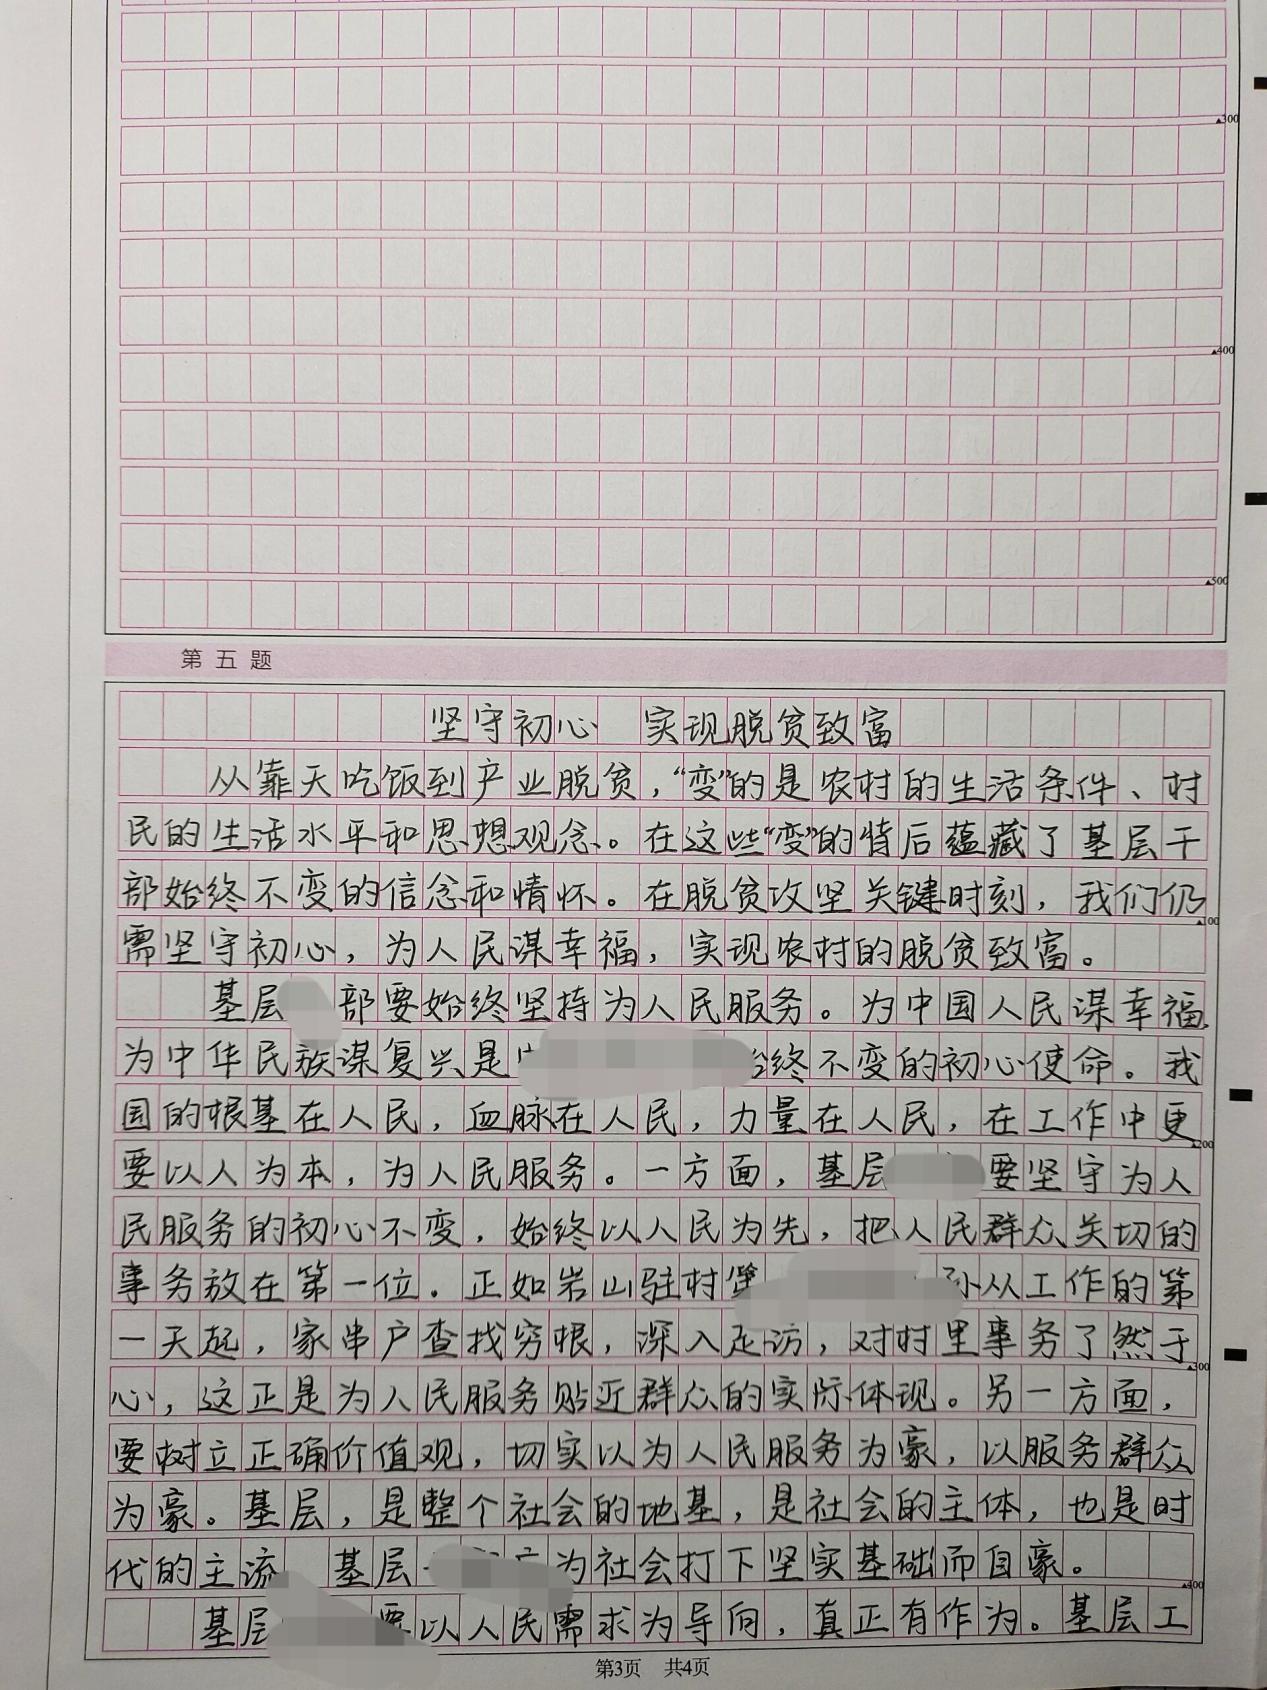 300
400
500
第五题
坚守初心 实现脱贫致富
从靠天吃饭到产业脱贫，“变”的是农村的生活条件、村
民的生活水平和思想观念。在这些“变”的背后蕴藏了基层干
部始终不变的信念和情怀。在脱贫攻坚关键时刻，我们仍
100
需坚守初心，为人民谋幸福，实现农村的脱贫致富。
基层 部要始终坚持为人民服务。为中国人民谋幸福，
为中华民族谋复兴是 终不变的初心使命。我
国的根基在人民，血脉在人民，力量在人民，在工作中更
200
要以人为本，为人民服务。一方面，基层 要坚守为人
民服务的初心不变，始终以人民为先，把人民群众关切的
事务放在第一位。正如岩山驻村 从工作的第
一天起，家串户查找穷根，深入走访，对村里事务了然于
300
心，这正是为人民服务贴近群众的实际体现。另一方面，
要树立正确价值观，切实以为人民服务为豪，以服务群众
为豪。基层，是整个社会的地基，是社会的主体，也是时
代的主流 基层 为社会打下坚实基础而自豪。
400
基层 要以人民需求为导向，真正有作为。基层工
第3页 共4页